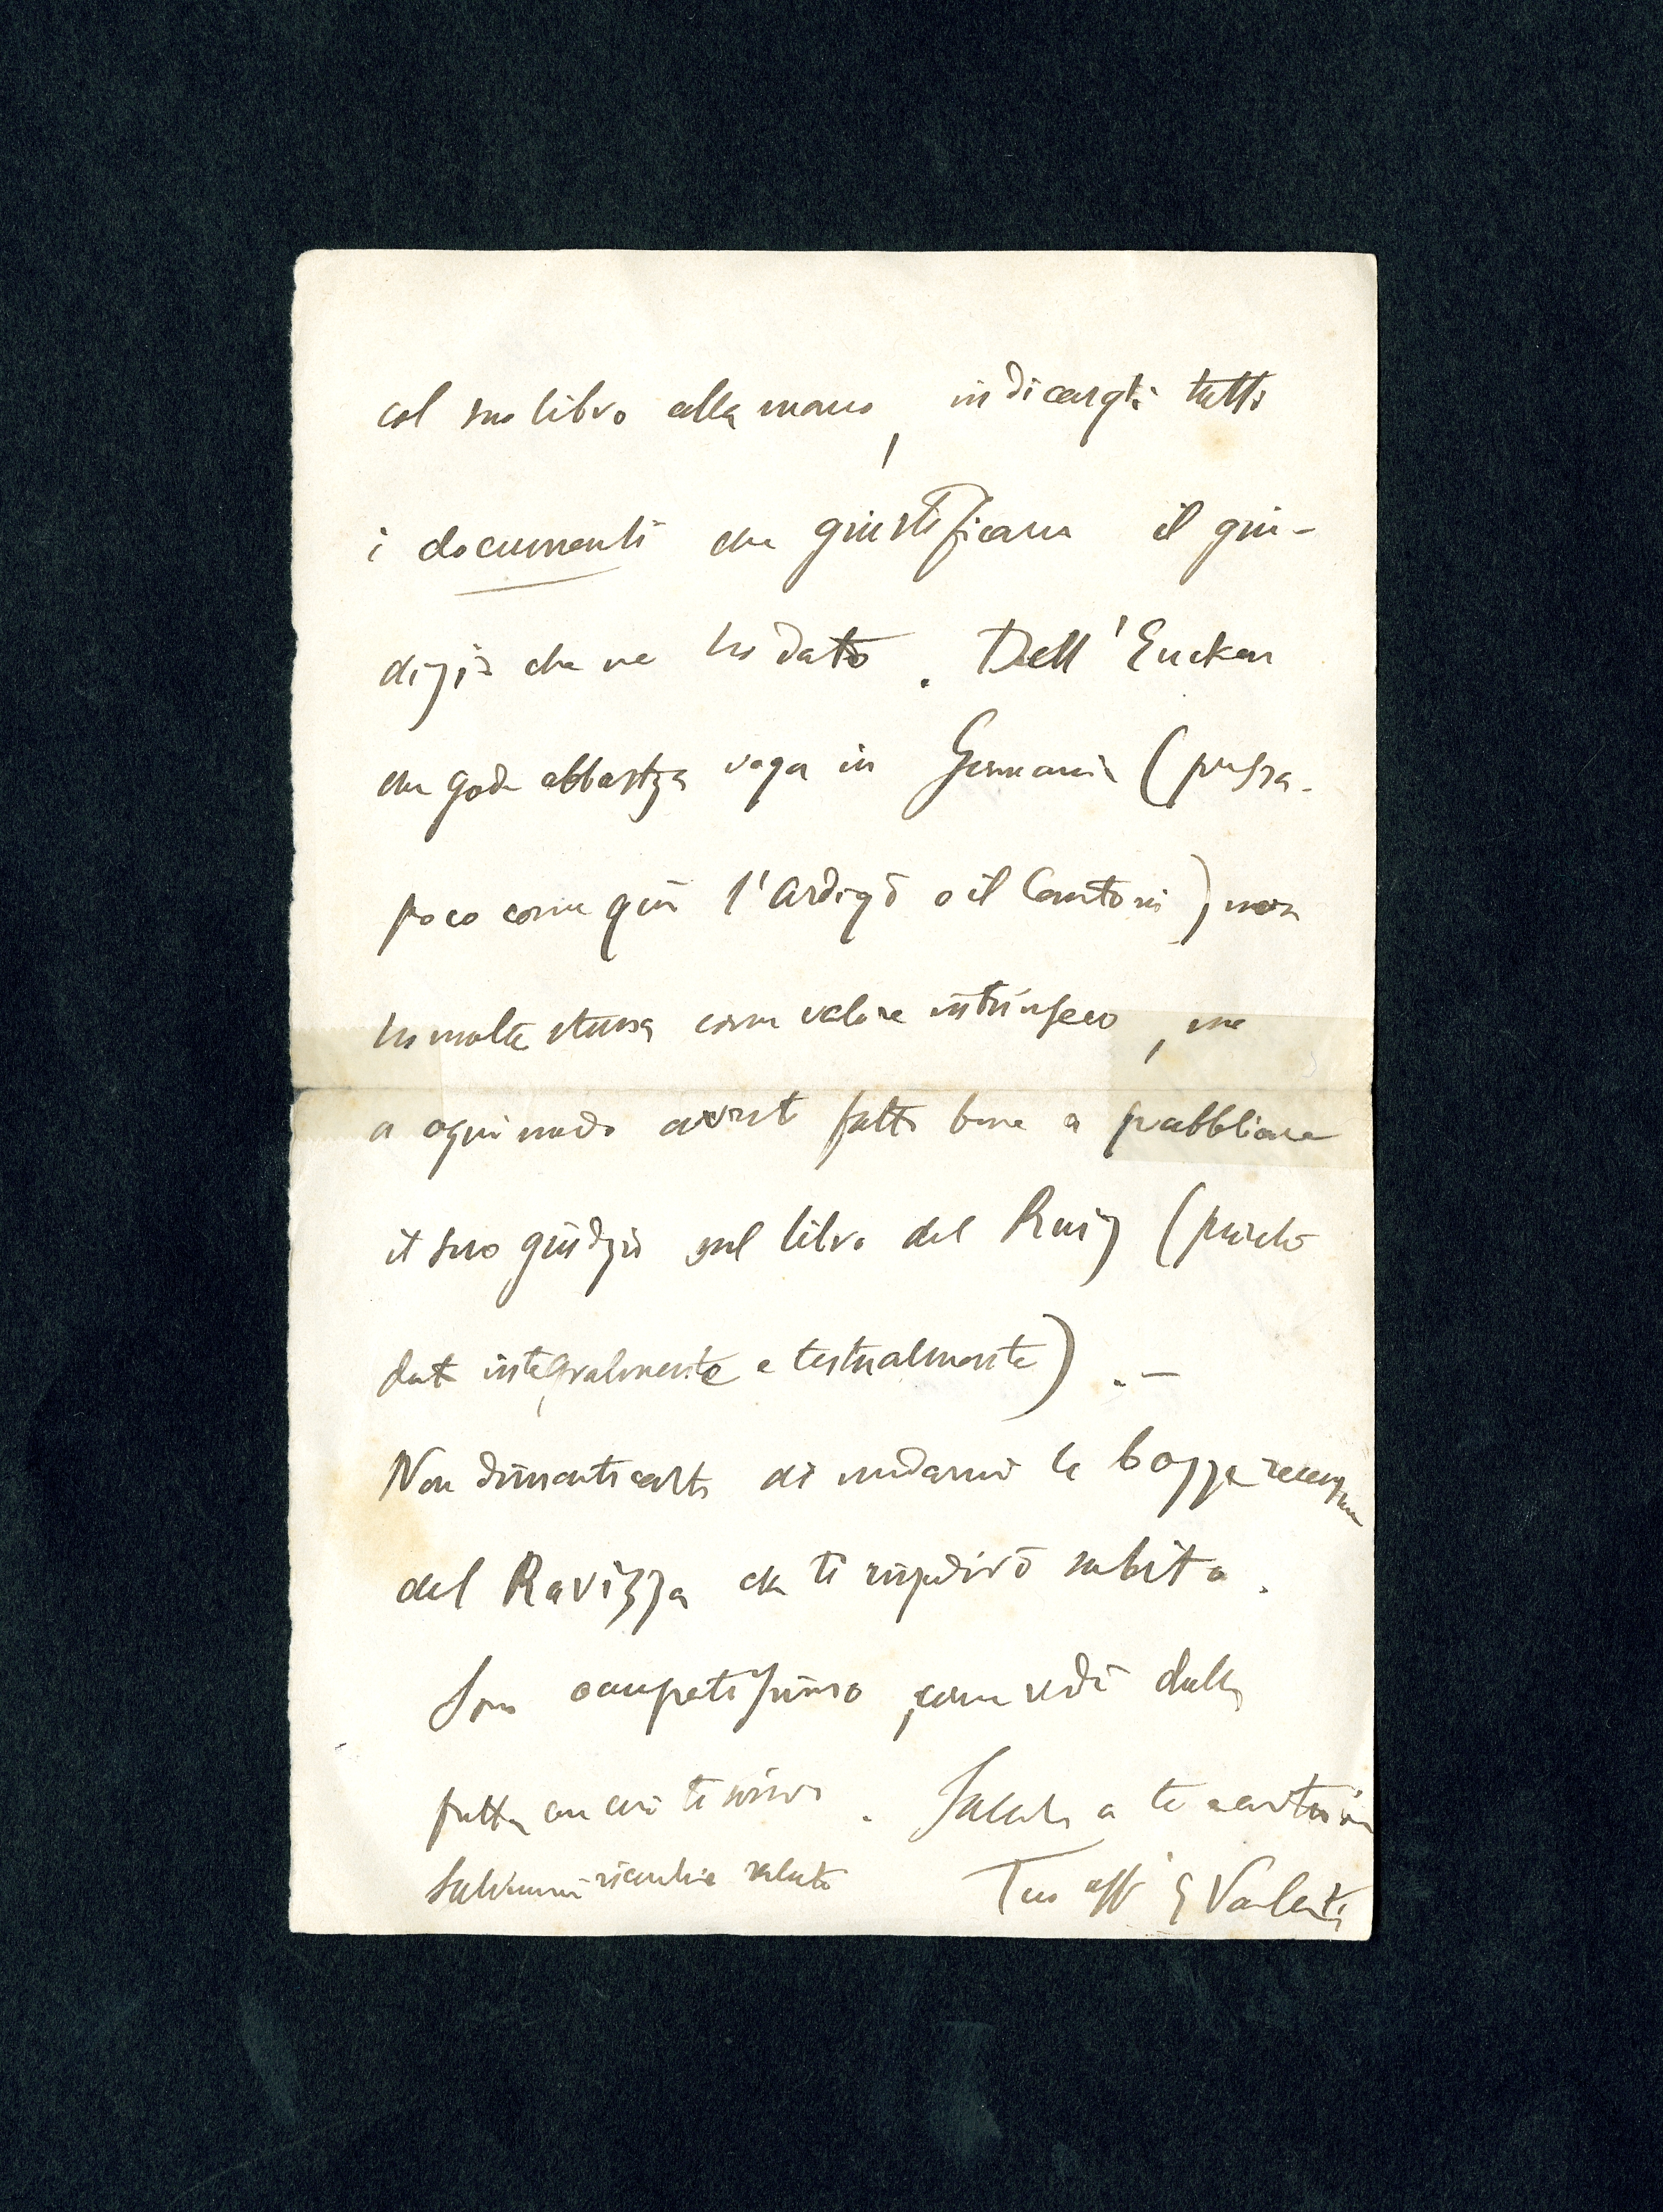 col suo libro alla mano, indicargli tutti
i documenti che giustificano il giu-
dizio che ne ho dato. Dell'Eucken
che gode abbastza voga in Germania (pressa-
poco come qui l'Ardigò o il Cantoni) non
ho molta stima come valore intrinseco, ma
a ogni modo avrest fatto bene a pubblicare
il suo giudizio sul libro del Ruiz (purchè
dato integralmente e testualmente). —
Non dimenticarti di mandarmi le bozze recens
del Ravizza che ti rispedirò subito.
Sono occupatissimo, come vedi dalla
fretta con cui ti scrivo. Saluti a te e
Salvemini ricambia saluto Tuo aff G Vailati